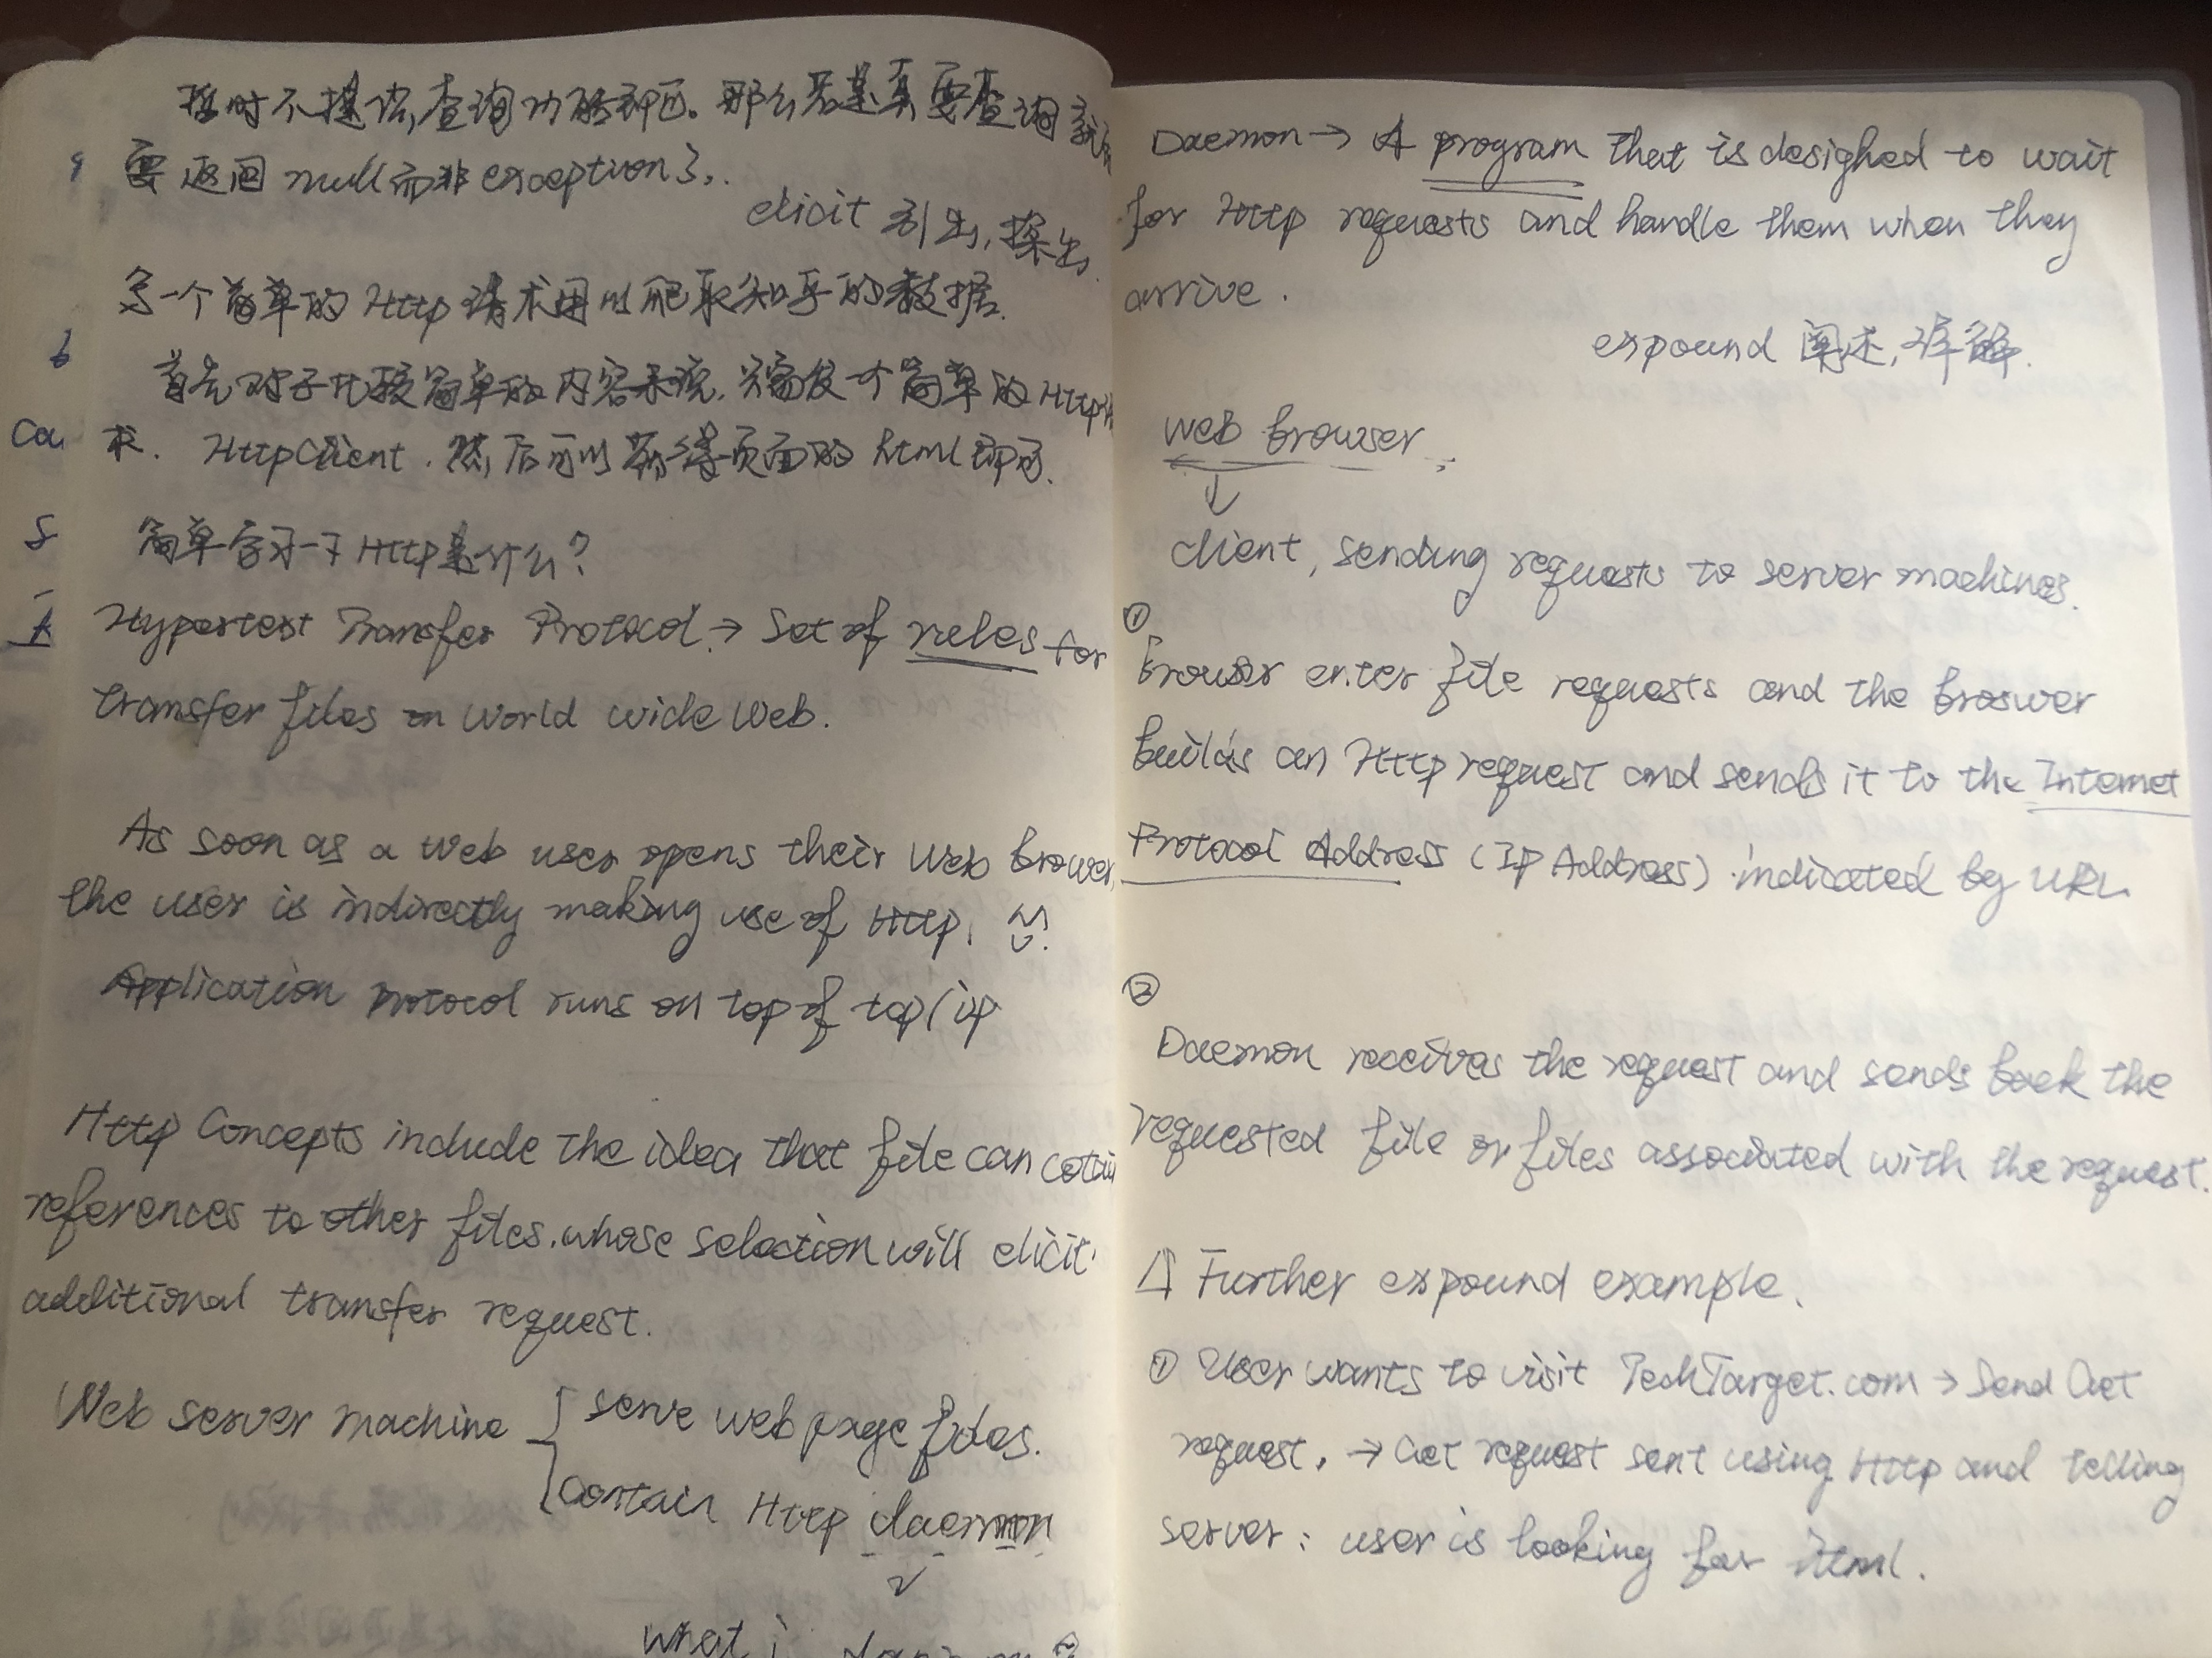 暂时不提供查询功能即可。那么若是真要查询就
要返回null而非exception了.
elicit 引出,探出
写一个简单的Http请求用以爬取知乎的数据.
首先对于比较简单的内容来说,只需发个简单的Http
求. HttpClient.然后可以获得页面的html即可.
简单学习一下Http是什么?
Hypertext Transfer Protocol.→ Set of rules for
transfer files on World wide Web.
As soon as a Web user opens their Web brower,
the user is indirectly making use of Http.
Application protocol runs on top of tcp/ip
Http Concepts include the idea that file can cotain
references to other files.whose selection will elicit
additional transfer request.
Web server machine
serve web page files.
Contain Http daemon
what i
Daemon → A program that is designed to wait
for Http requests and handle them when they
arrive.
expound 阐述,详解.
web browser.
↓
client, sending requests to server machines.
①
browser enter file requests and the broswer
builds an Http request and sends it to the Internet
Protocol Address (Ip Address) indicated by URL
②
Daemon receives the request and sends back the
requested file or files associated with the request.
Further expound example.
① User wants to visit TechTarget.com → Send Get
request. → Get request sent using Http and telling
server: user is looking for html.